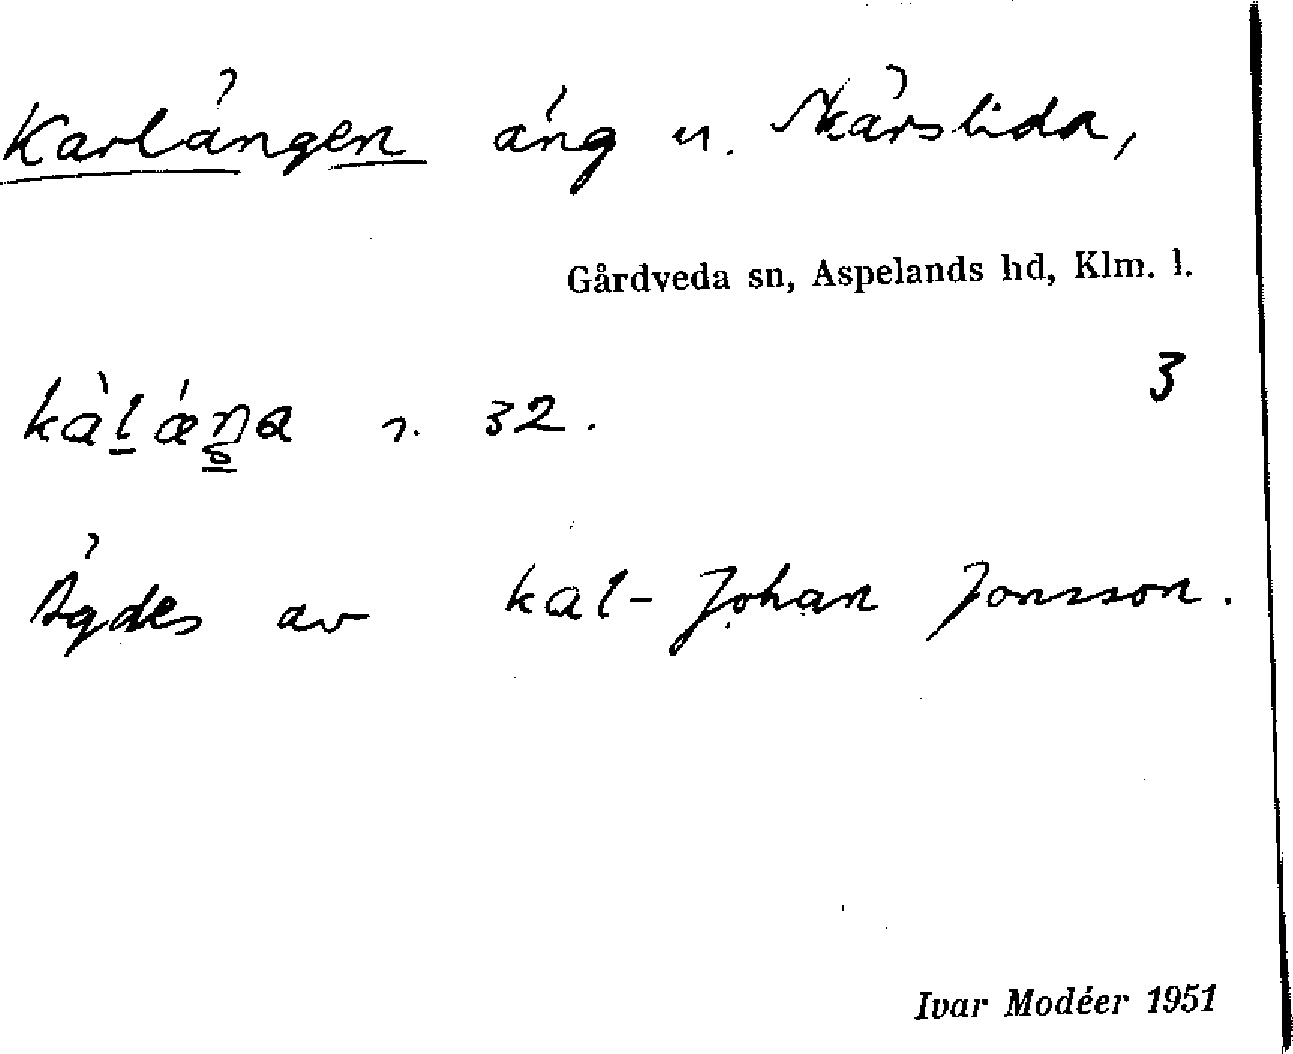 Karlängen äng u. Skärslida,
Gårdveda sn, Aspelands hd, Klm. l.
3
kàláŋa r. 32.
Ägdes av kal-Johan Jonsson.
Ivar Modéer 1951